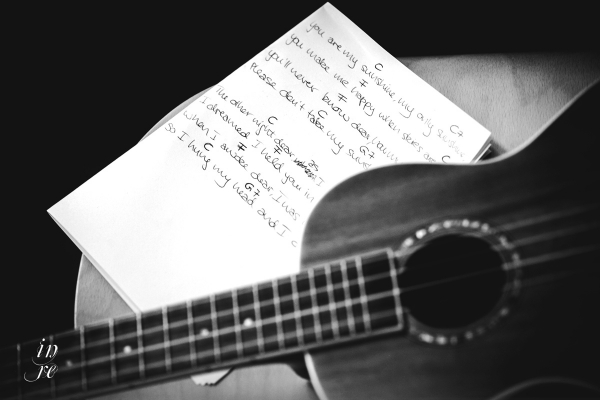 you are my sunshine, my only sunshine
C
you make me happy when skies are
F C7
you'll never know dear,
F C
please don't take my suns
C G7
The other night dear as I
C
I dreamed I held you in
F
When I awoke dear, I was
F
So I hung my head and I c
C G7
in
re